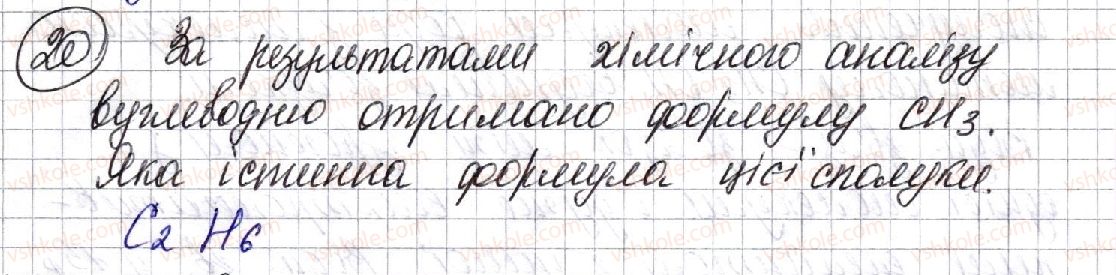 20 За результатами хімічного аналізу
вуглеводню отримано формулу CH3.
Яка істинна формула цієї сполуки.
C2H6